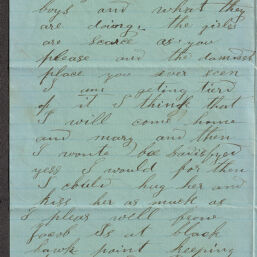 boys and what they
are doing. the girls
are scarce as you
please and the damdest
place you ever seen
I am geting tierd
of it I think that
I will come home
and mary and then
I wonte be
yess I would for then
I could hug her and
kiss her as much as
I pleas well
Jacob is at black
hawk point keeping